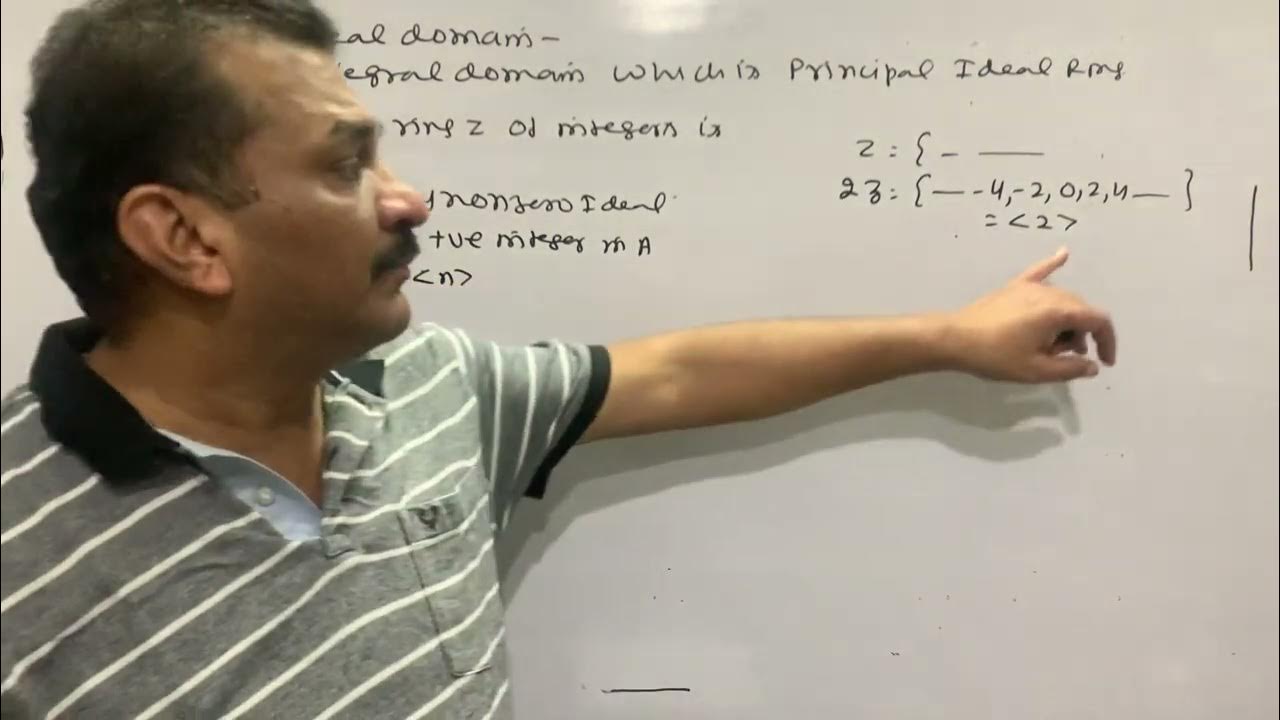 al domain-
egral domain which is Principal Ideal Ring
ring Z of integers is
y nonzero Ideal
+ve integer in A
<n>
Z = { - ——
2Z = { — -4, -2, 0, 2, 4 — }
= <2>